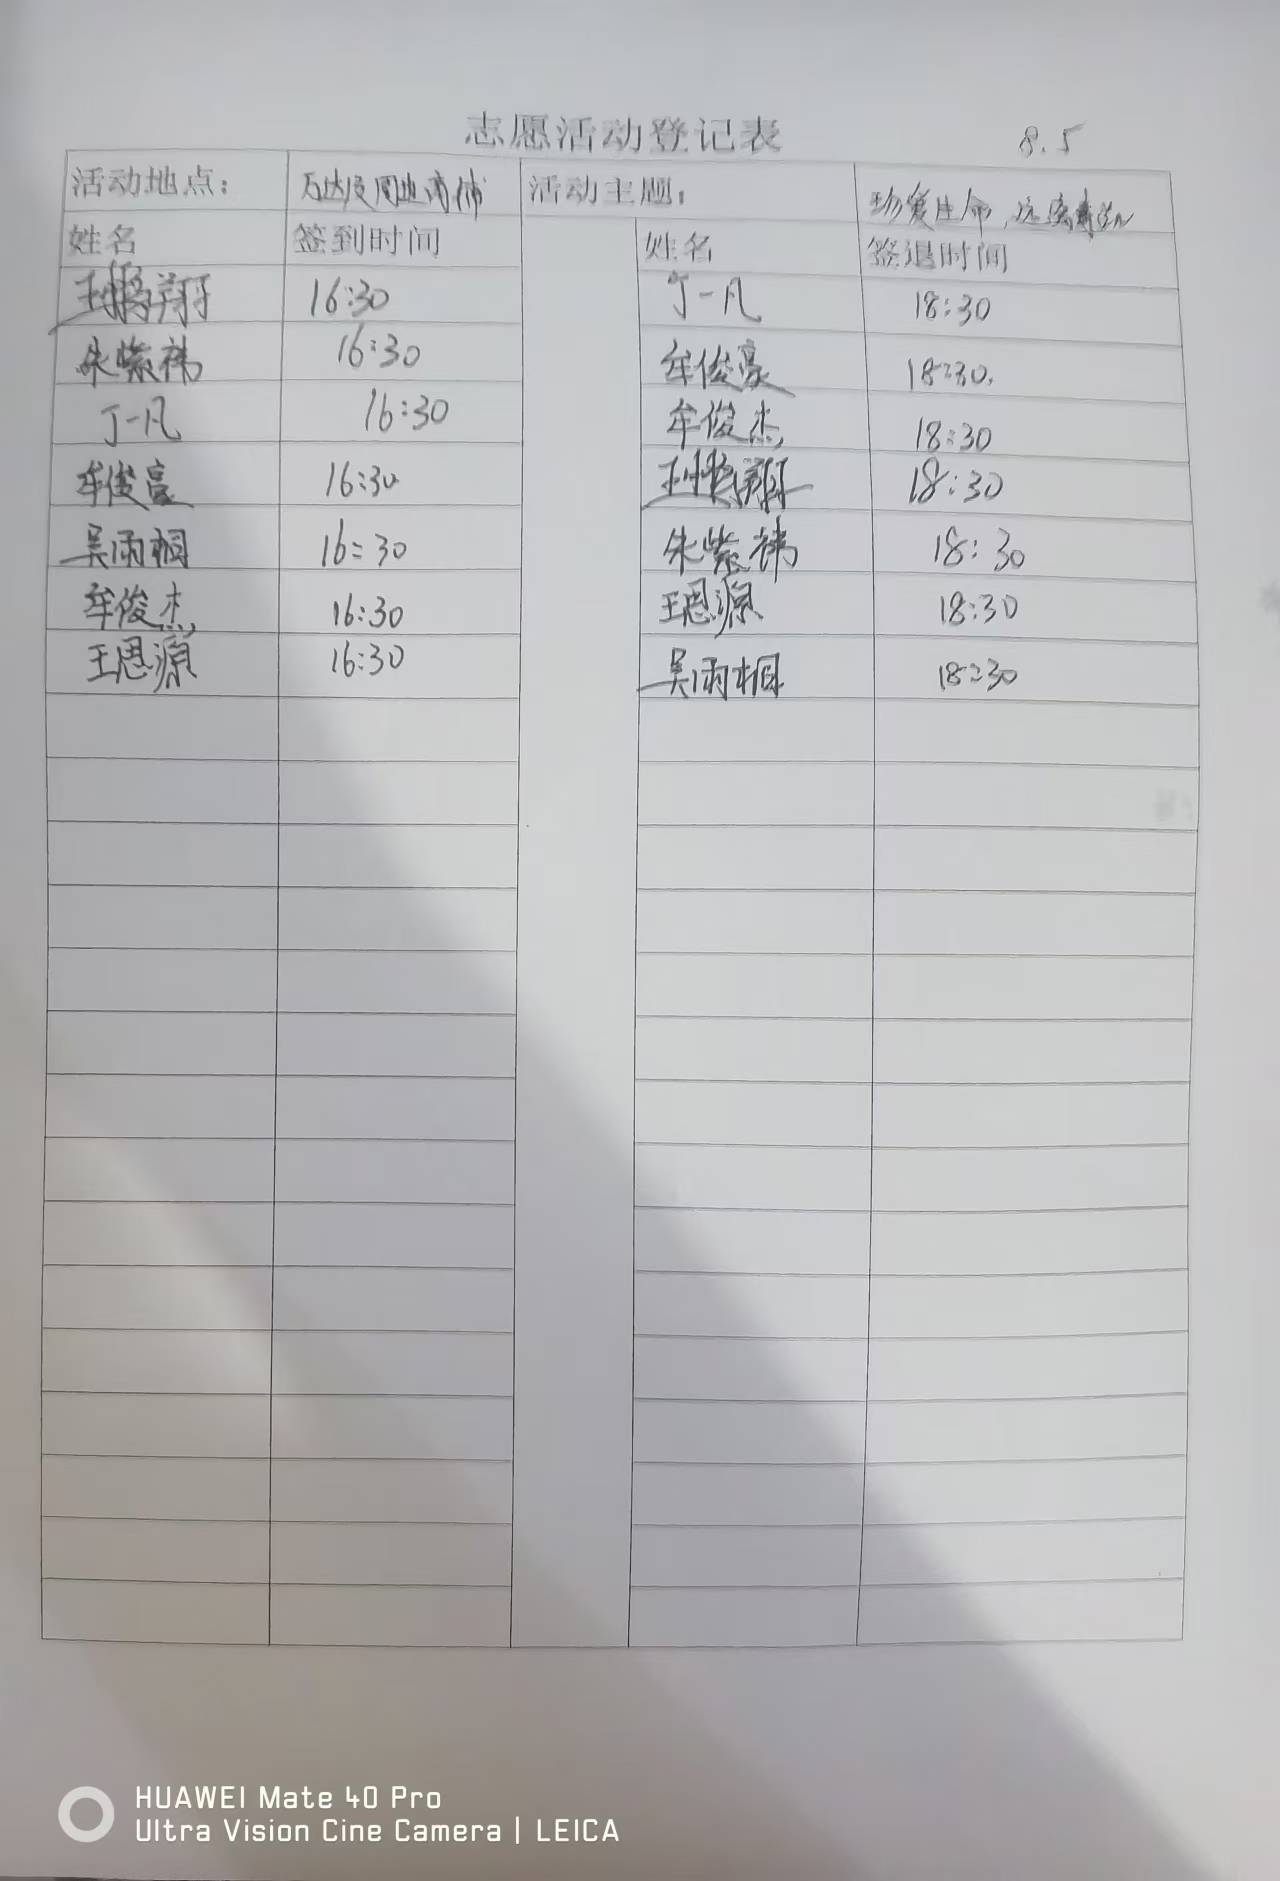 志愿活动登记表 8.5
活动地点： 万达及周边商铺 活动主题： 珍爱生命，远离
姓名 签到时间 姓名 签退时间
翔 16:30 丁一凡 18:30
朱紫祎 16:30 牟俊豪 18:30.
丁一凡 16:30 牟俊杰 18:30
牟俊豪 16:30 翔 18:30
吴雨桐 16:30 朱紫祎 18:30
牟俊杰 16:30 王思源 18:30
王思源 16:30 吴雨桐 18:30
HUAWEI Mate 40 Pro
Ultra Vision Cine Camera | LEICA